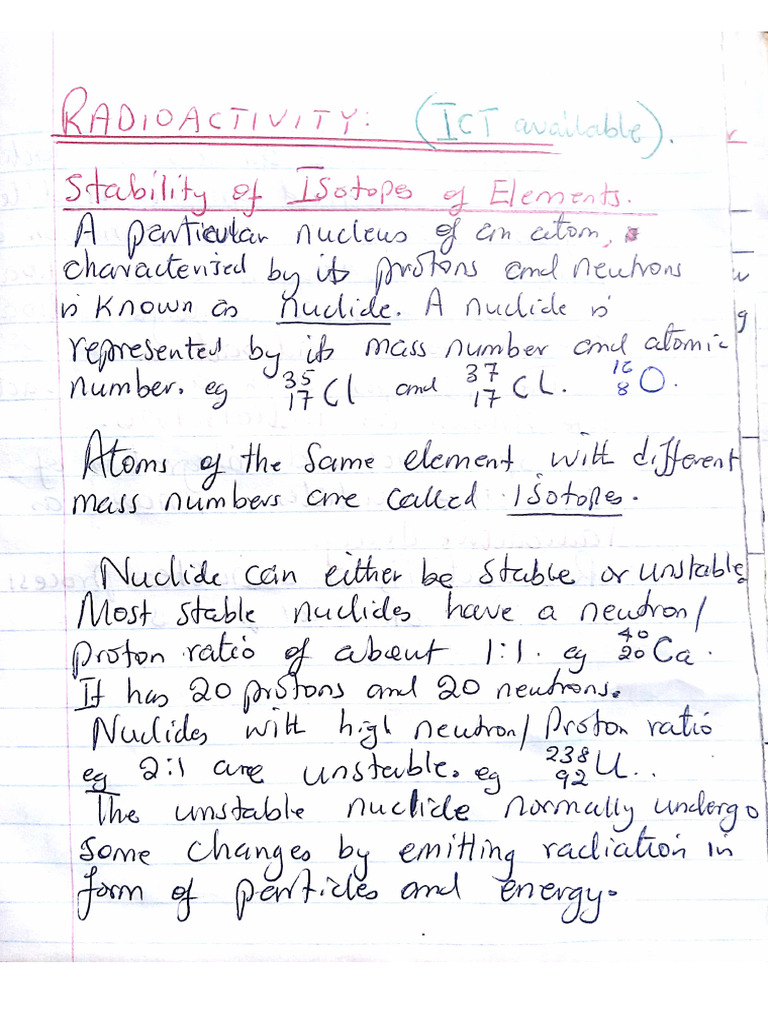 RADIOACTIVITY: (ICT available).
Stability of Isotopes of Elements.
A particular nucleus of an atom,
characterised by its protons and neutrons
is known as nuclide. A nuclide is
represented by its mass number and atomic
number. eg ³⁵₁₇Cl and ³⁷₁₇CL. ¹⁶₈O.
Atoms of the same element with different
mass numbers are called isotopes.
Nuclide can either be stable or unstable.
Most stable nuclides have a neutron/
proton ratio of about 1:1. eg ⁴⁰₂₀Ca.
It has 20 protons and 20 neutrons.
Nuclides with high neutron/Proton ratio
eg 2:1 are unstable. eg ²³⁸₉₂U..
The unstable nuclide normally undergo
some changes by emitting radiation in
form of particles and energy.